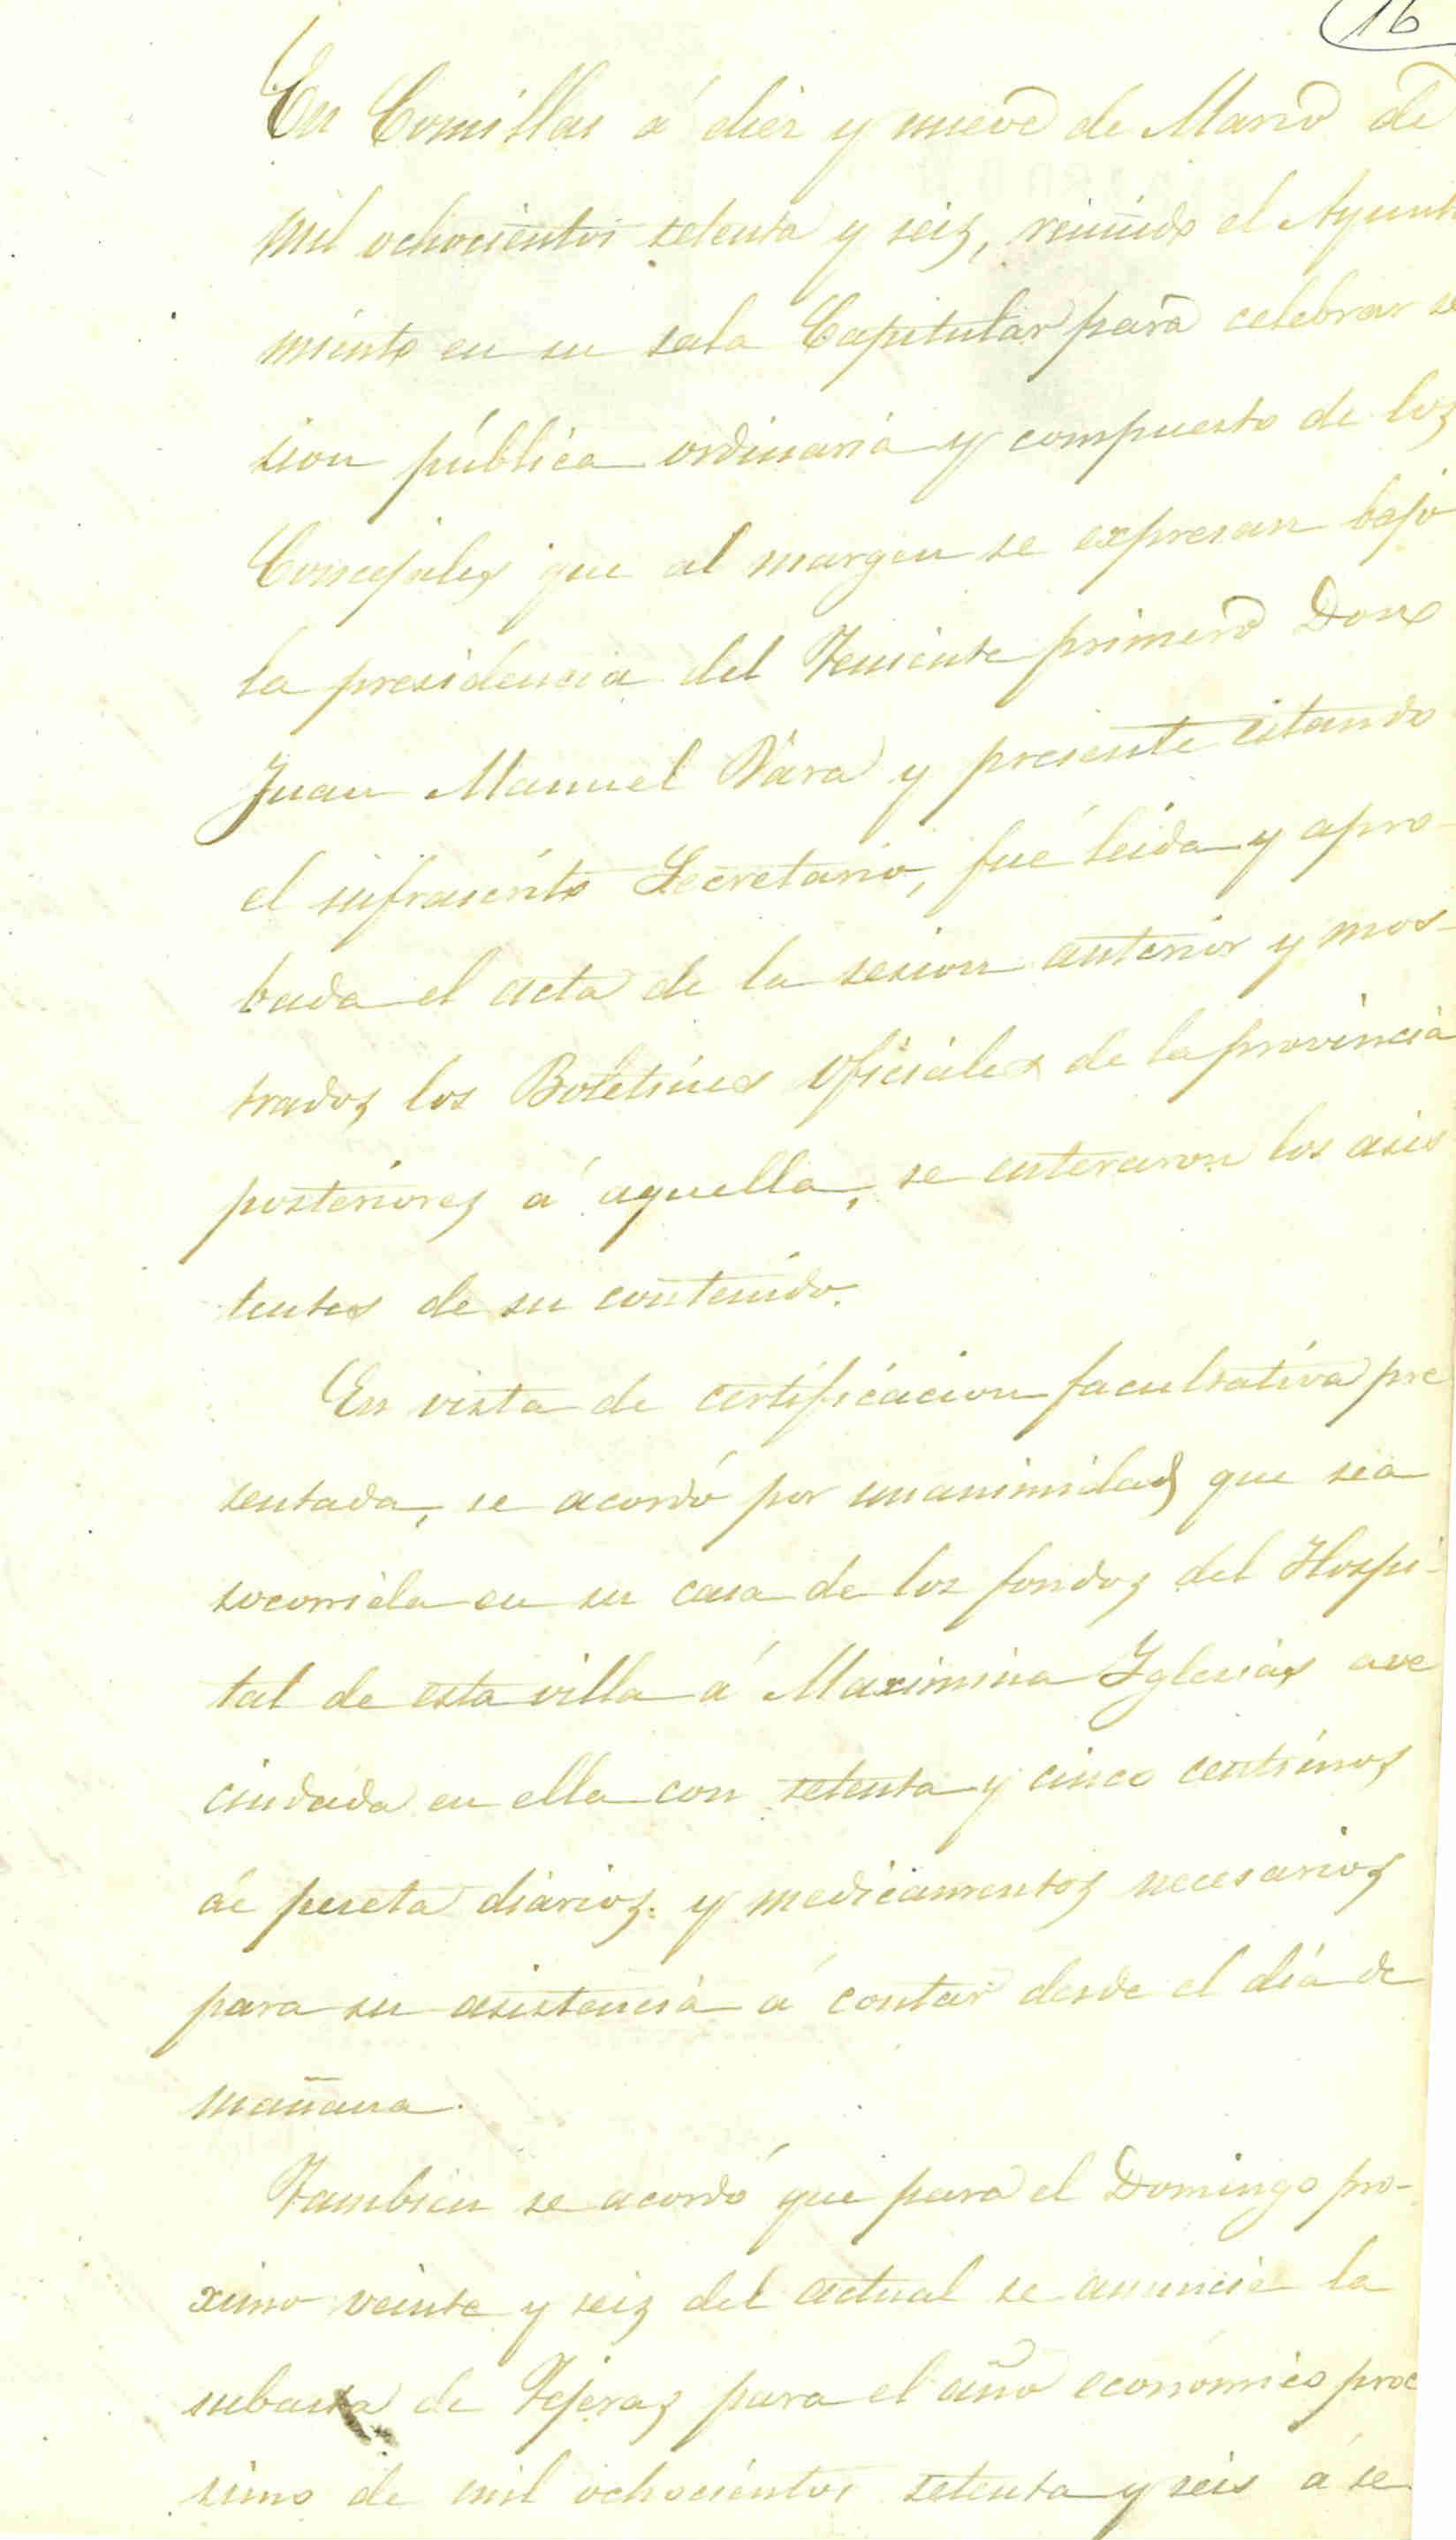 16
En Comillas á diez y nueve de Marzo de
mil ochocientos setenta y seis, reunido el Ayunta
miento en su sala Capitular para celebrar se
sion pública ordinaria y compuesto de los
Concejales que al margen se expresan bajo
la presidencia del Teniente primero Don
Juan Manuel Vara y presente estando
el infrascrito Secretario, fué leida y apro-
bada el acta de la sesion anterior y mos-
trados los Boletines oficiales de la provincia
posteriores á aquella, se enteraron los asis
tentes de su contenido.
En vista de certificacion facultativa pre
sentada, se acordó por unanimidad que sea
socorrida en su casa de los fondos del Hospi-
tal de esta villa á Maximina Iglesias ave
cindada en ella con setenta y cinco centimos
de peseta diarios y medicamentos necesarios
para su asistencia á contar desde el dia de
mañana.
Tambien se acordó que para el Domingo pro-
ximo veinte y seis del actual se anuncie la
subasta de Tejeras para el año económico proc
simo de mil ochocientos setenta y seis á se